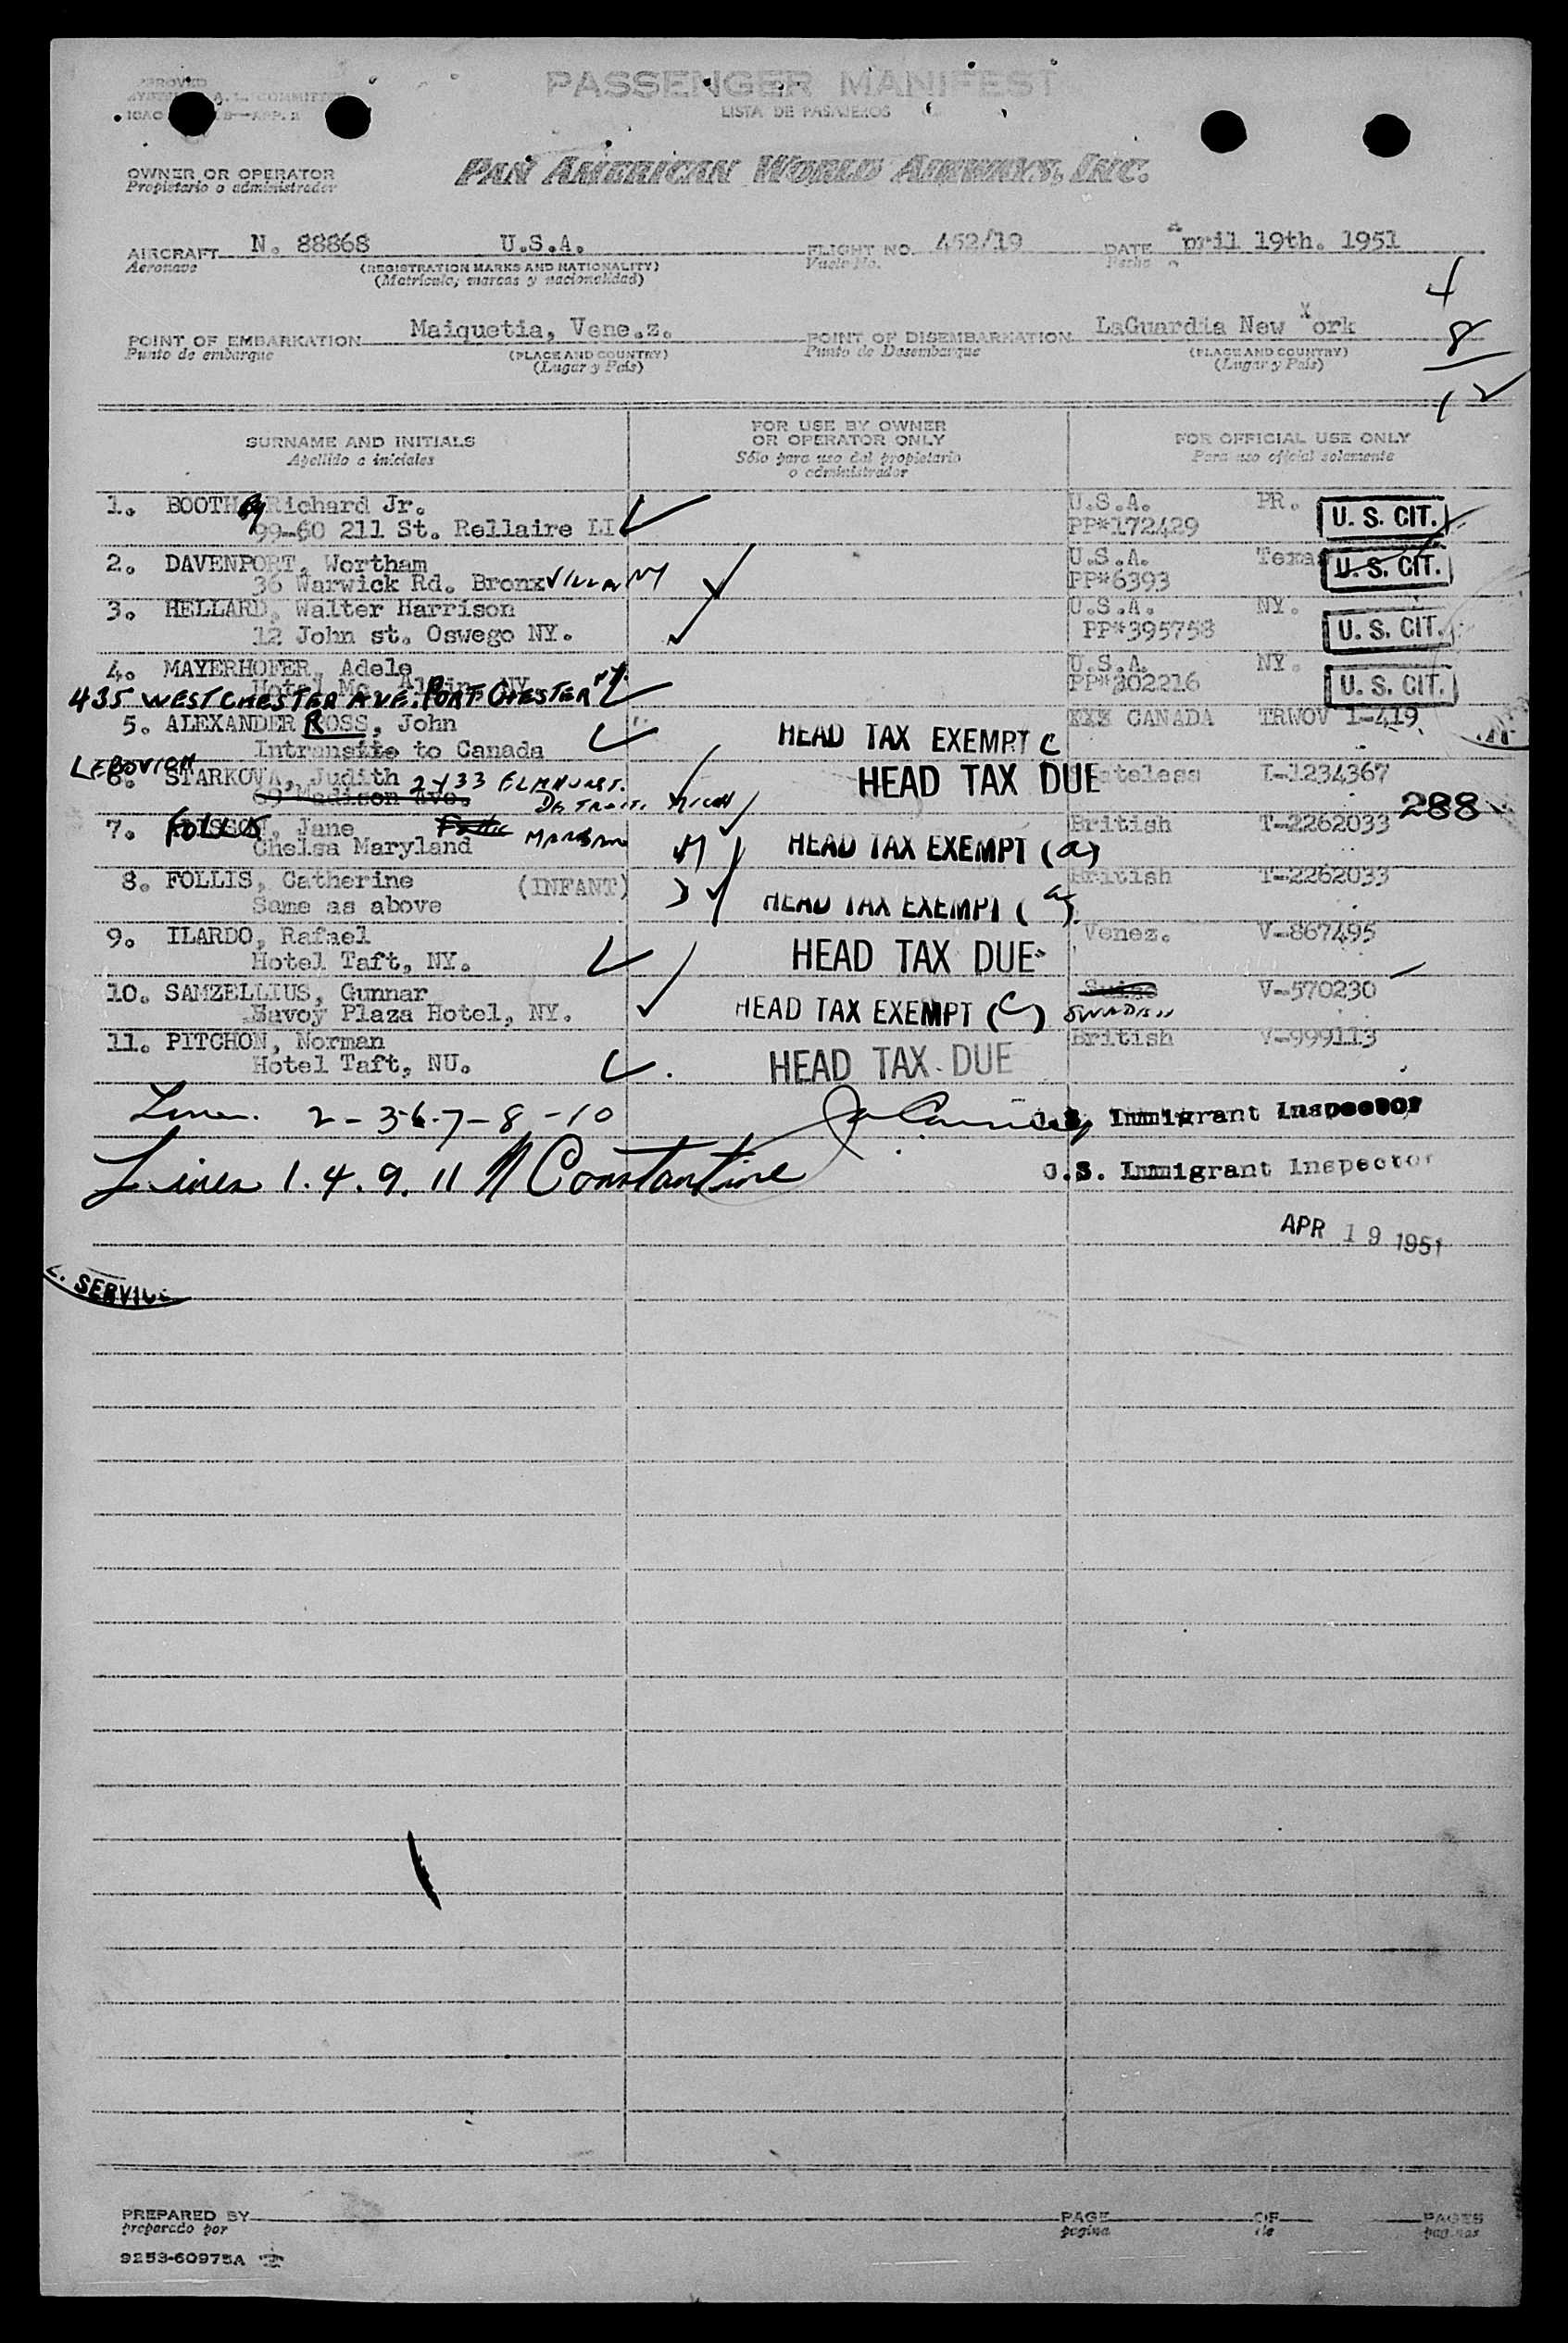 PASSENGER MANIFEST
LISTA DE PASAJEROS
OWNER OR OPERATOR
Propietario o administrador
PAN AMERICAN WORLD AIRWAYS, INC.
AIRCRAFT N. 88868 U.S.A. FLIGHT NO. 452/19 DATE April 19th. 1951
Aeronave (REGISTRATION MARKS AND NATIONALITY) Vuelo No. Fecha
(Matricula, marcas y nacionalidad)
4
POINT OF EMBARKATION Maiquetia, Vene.z. POINT OF DISEMBARKATION LaGuardia New York 8
Punto de embarque (PLACE AND COUNTRY) Punto de Desembarque (PLACE AND COUNTRY)
(Lugar y País) (Lugar y País)
12
SURNAME AND INITIALS FOR USE BY OWNER OR OPERATOR ONLY FOR OFFICIAL USE ONLY
Apellido a iniciales Sólo para uso del propietario o administrador Para uso oficial solamente
1. BOOTHBY Richard Jr. U.S.A. PR. U. S. CIT.
99-60 211 St. Rellaire LI PP#172429
2. DAVENPORT, Wortham U.S.A. Texas U. S. CIT.
36 Warwick Rd. BronxVILLE NY PP#6393
3. HELLARD, Walter Harrison U.S.A. NY. U. S. CIT.
12 John st. Oswego NY. PP#395758
4. MAYERHOFER, Adele U.S.A. NY. U. S. CIT.
Hotel Mc. Alpin NY PP#302216
435 WESTCHESTER AVE. PORT CHESTER NY.
5. ALEXANDER ROSS, John HEAD TAX EXEMPT C XXX CANADA TRWOV 1-419
Intransite to Canada
LEBOVICH
6. STARKOVA, Judith 2433 ELMHURST. HEAD TAX DUE Stateless I-1234367
69 Madison Ave. DETROIT. MICH 288
7. FOLLIS, Jane HEAD TAX EXEMPT (a) British T-2262033
Chelsa Maryland
8. FOLLIS, Catherine (INFANT) HEAD TAX EXEMPT (a) British T-2262033
Same as above
9. ILARDO, Rafael HEAD TAX DUE Venez. V-867495
Hotel Taft, NY.
10. SAMZELLIUS, Gunnar HEAD TAX EXEMPT (C) SWEDEN V-570230
Savoy Plaza Hotel, NY.
11. PITCHON, Norman HEAD TAX DUE British V-999113
Hotel Taft, NU.
Lines. 2-3-6-7-8-10 U.S. Immigrant Inspector
Lines 1. 4. 9. 11 N Constantine U.S. Immigrant Inspector
APR 19 1951
SERVICE
PREPARED BY PAGE OF PAGES
preparado por pagina de paginas
9253-60975A